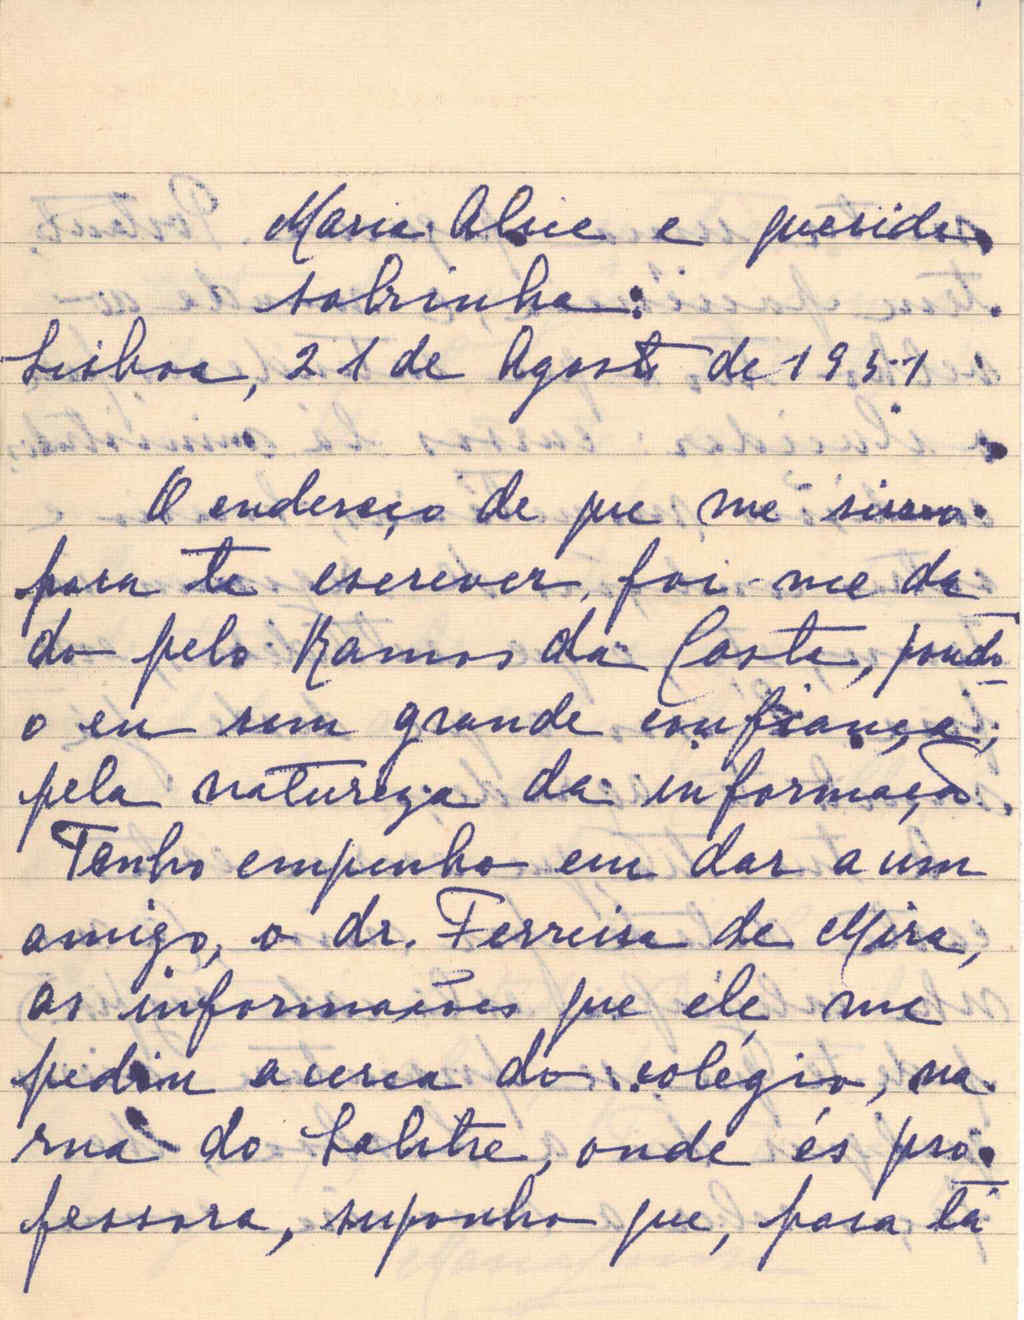 Maria Alice e querida
sobrinha:
Lisboa, 21 de Agosto de 1951
O endereço de que me sirvo
para te escrever, foi-me da
do pelo Ramos da Costa, pondo
o eu sem grande confiança,
pela natureza da informação.
Tenho empenho em dar a um
amigo, o dr. Ferreira de Mira,
as informações que êle me
pediu acerca do colégio, na
rua do Salitre, onde és pro-
fessora, suponho que, para lá